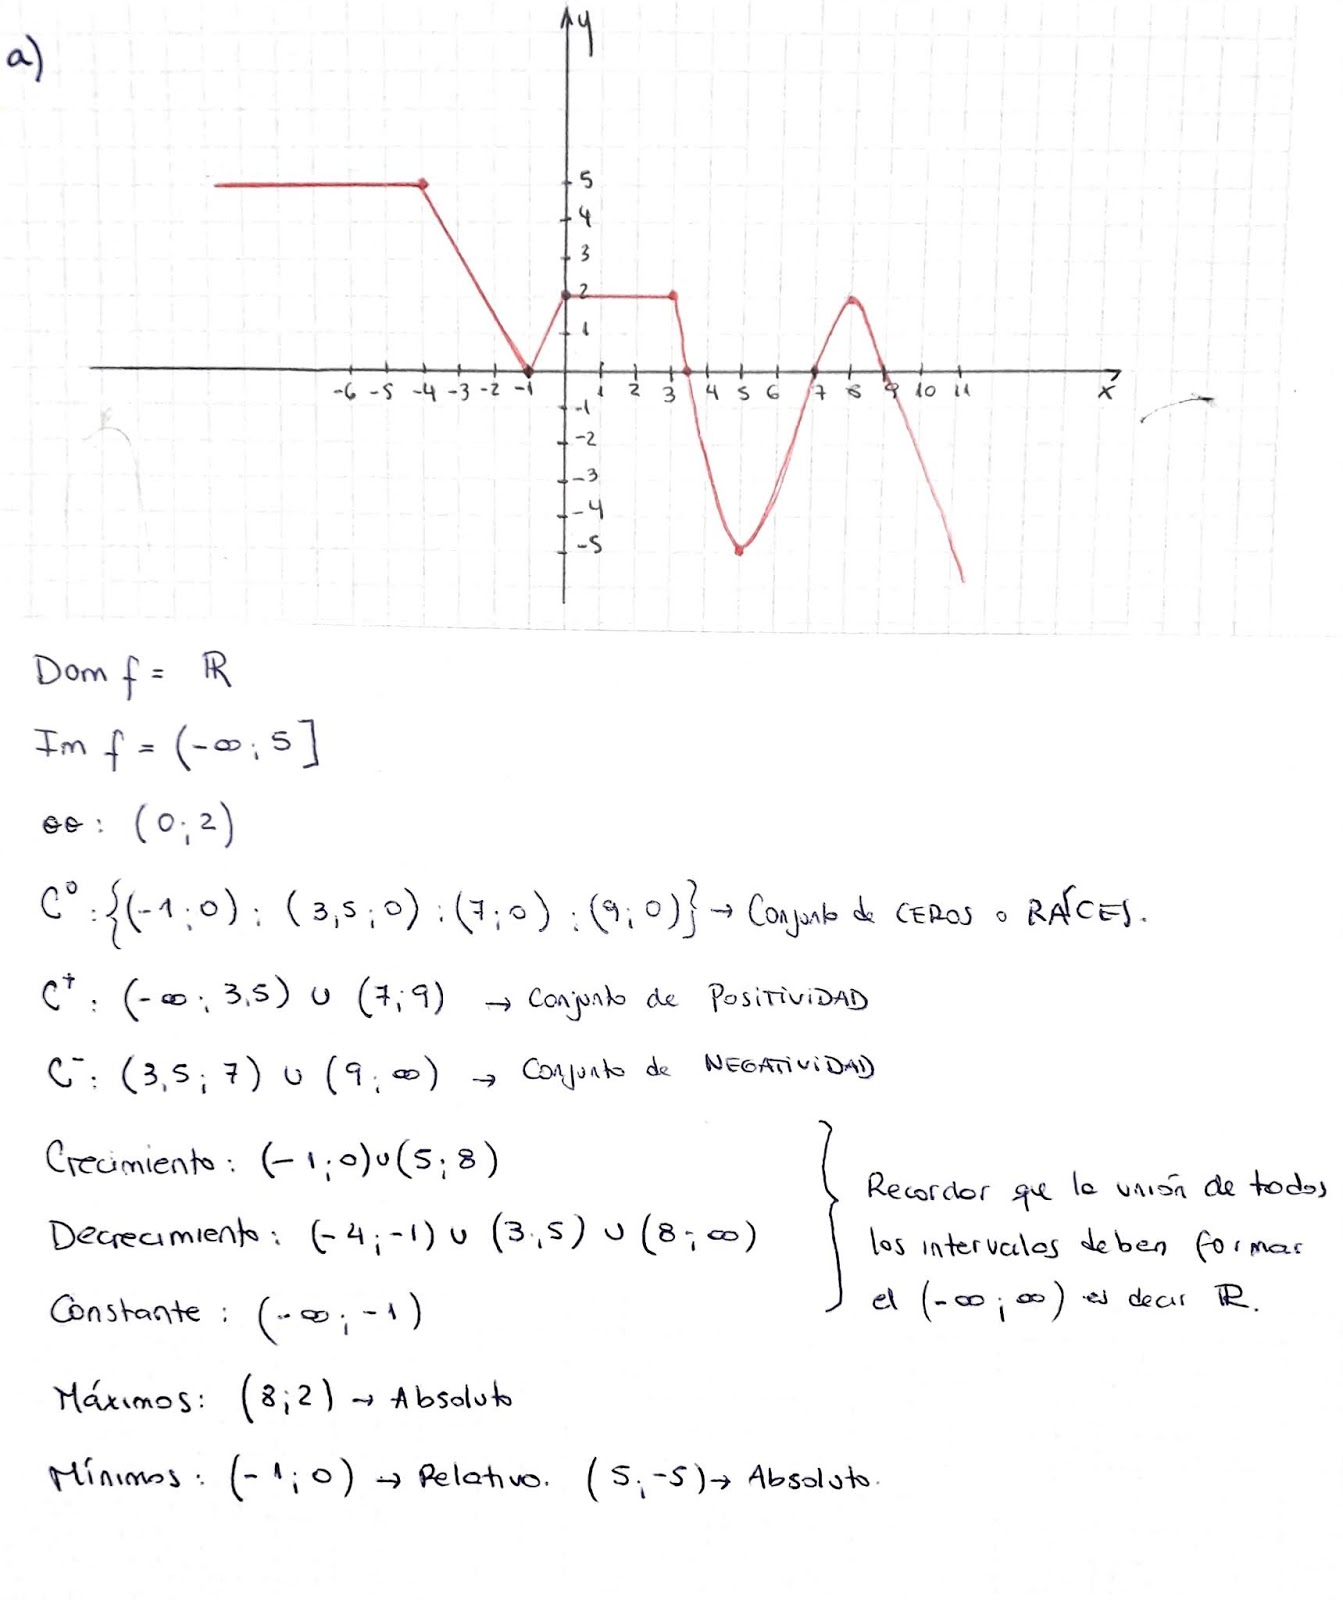 a)
y
5
4
3
2
1
-6 -5 -4 -3 -2 -1 1 2 3 4 5 6 7 8 9 10 11 x
-1
-2
-3
-4
-5
Dom f = ℝ
Im f = (-∞; 5]
: (0; 2)
C⁰: {(-1; 0); (3,5; 0); (7; 0); (9; 0)} → Conjunto de CEROS o RAÍCES.
C⁺: (-∞; 3,5) ∪ (7; 9) → Conjunto de POSITIVIDAD
C⁻: (3,5; 7) ∪ (9; ∞) → Conjunto de NEGATIVIDAD
Crecimiento: (-1; 0)∪(5; 8)
Decrecimiento: (-4; -1) ∪ (3; 5) ∪ (8; ∞)
Constante: (-∞; -1)
Recordar que la unión de todos
los intervalos deben formar
el (-∞; ∞) es decir ℝ.
Máximos: (8; 2) → Absoluto
Mínimos: (-1; 0) → Relativo. (5; -5) → Absoluto.